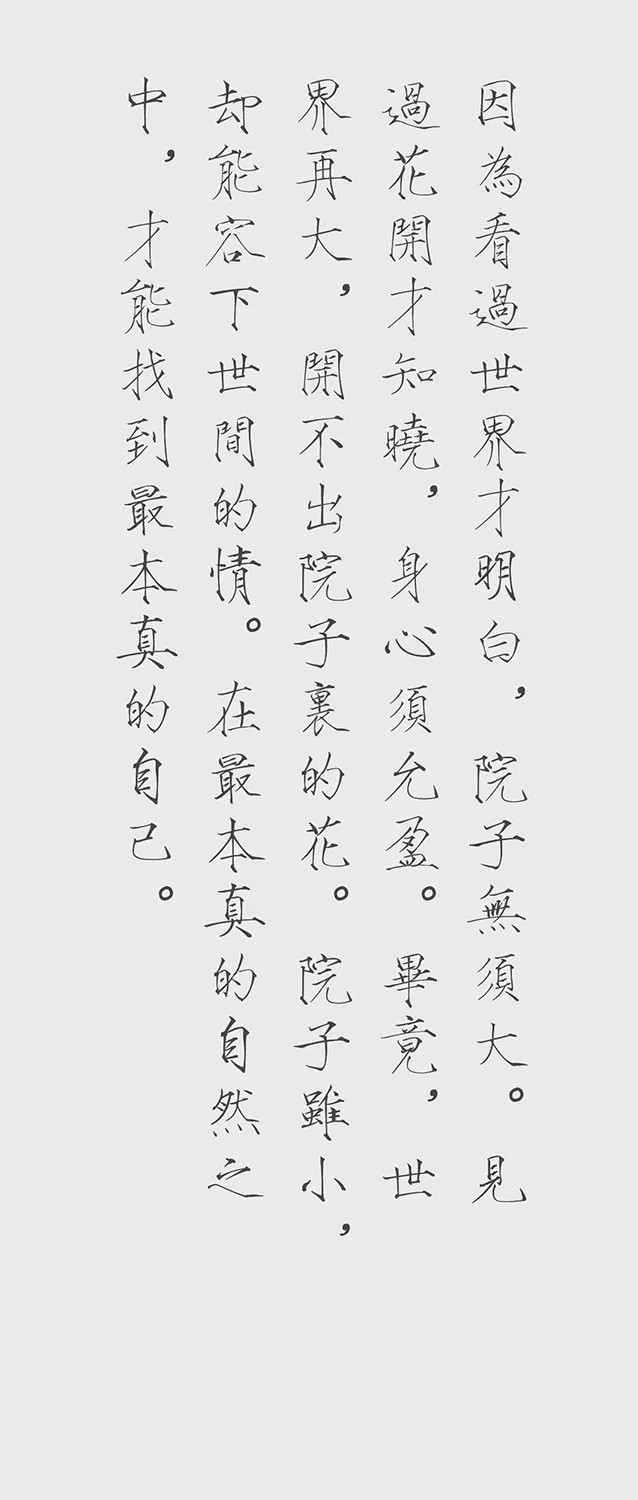 因為看過世界才明白，院子無須大。見
過花開才知曉，身心須允盈。畢竟，世
界再大，開不出院子裏的花。院子雖小，
却能容下世間的情。在最本真的自然之
中，才能找到最本真的自己。